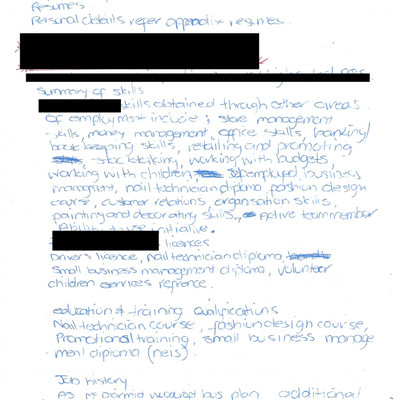 Resumes
Personal details refer appendix resumes.
Summary of skills
skills obtained through other areas
of employment include; store management
skills, money management, office skills, banking/
book keeping skills, retailing and promoting
stock taking, working with budgets,
working with children, employed, business
managment, nail technician diploma, fashion design
course, customer relations, organisation skills,
painting and decorating skills, Active team member
Ability to use initiative.
licences
Drivers licence, nail technician diploma,
Small business management diploma, volunteer
children services refrence.
education & training qualifications
Nail technician course, fashion design course,
Promotional training, small business manage
ment diploma (neis).
Job history
bus plan additional